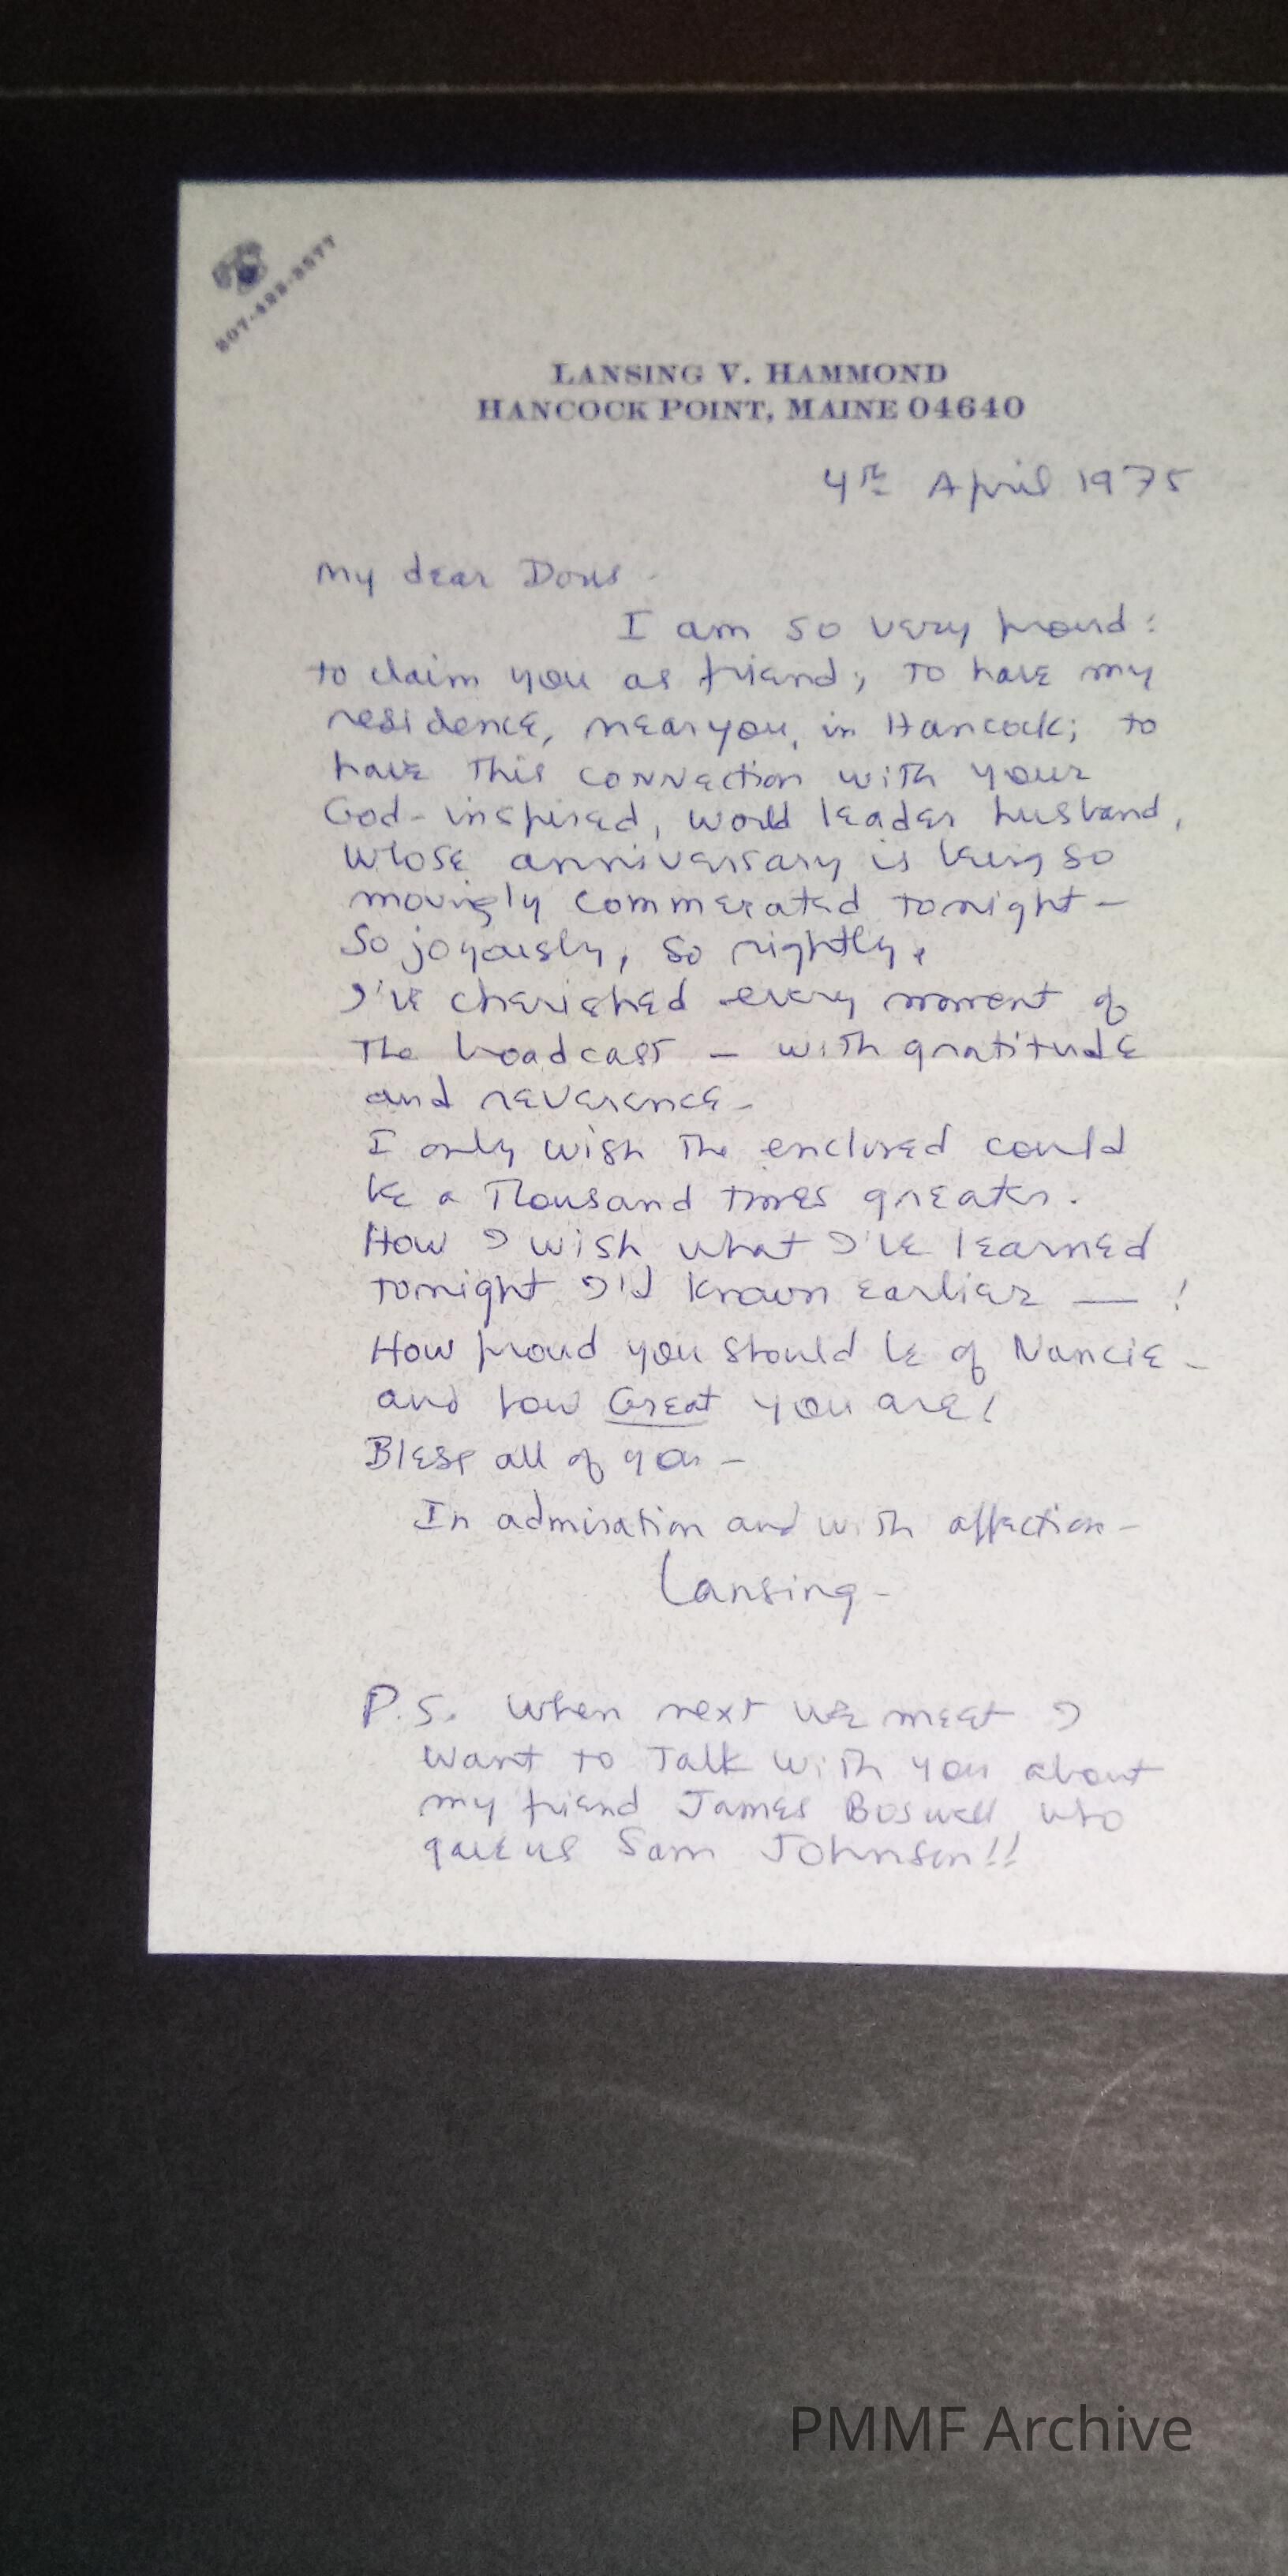 207-422-3577
LANSING V. HAMMOND
HANCOCK POINT, MAINE 04640
4th April 1975
My dear Doris -
I am so very proud:
to claim you as friend; to have my
residence, near you, in Hancock; to
have this connection with your
God-inspired, world leader husband,
whose anniversary is being so
movingly commerated tonight -
So joyously, so rightly,
I've cherished every moment of
The broadcast - with gratitude
and reverence -
I only wish the enclosed could
be a Thousand times greater.
How I wish what I've learned
tonight I'd known earlier — !
How proud you should be of Nancie -
and how Great you are!
Bless all of you -
In admiration and with affection -
Lansing -
P.S. When next we meet I
want to Talk with you about
my friend James Boswell who
gave us Sam Johnson!!
PMMF Archive